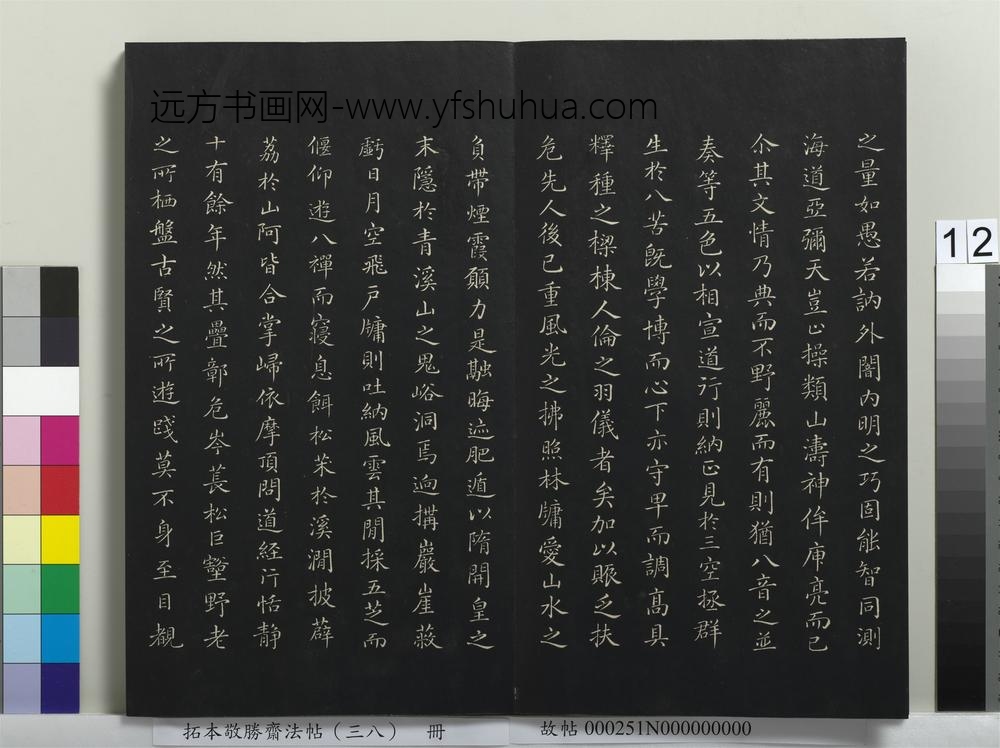 远方书画网-www.yfshuhua.com
之量如愚若訥外闇内明之巧固能智同測
海道亞彌天豈止操類山濤神侔庾亮而已
尒其文情乃典而不野麗而有則猶八音之並
奏等五色以相宣道行則納正見於三空拯群
生於八苦既學博而心下亦守卑而調高具
釋種之樑棟人倫之羽儀者矣加以賑乏扶
危先人後已重風光之拂照林牖愛山水之
負帶煙霞願力是融晦迹肥遁以隋開皇之
末隱於青溪山之鬼峪洞焉迥搆巖崖蔽
虧日月空飛戸牖則吐納風雲其閒採五芝而
偃仰遊八禪而寢息餌松茱於溪澗披薜
荔於山阿皆合掌歸依摩頂問道經行恬静
十有餘年然其疊彰危岑萇松巨壑野老
之所栖盤古賢之所遊踐莫不身至目覩
12
拓本敬勝齋法帖（三八） 冊
故帖 000251N000000000